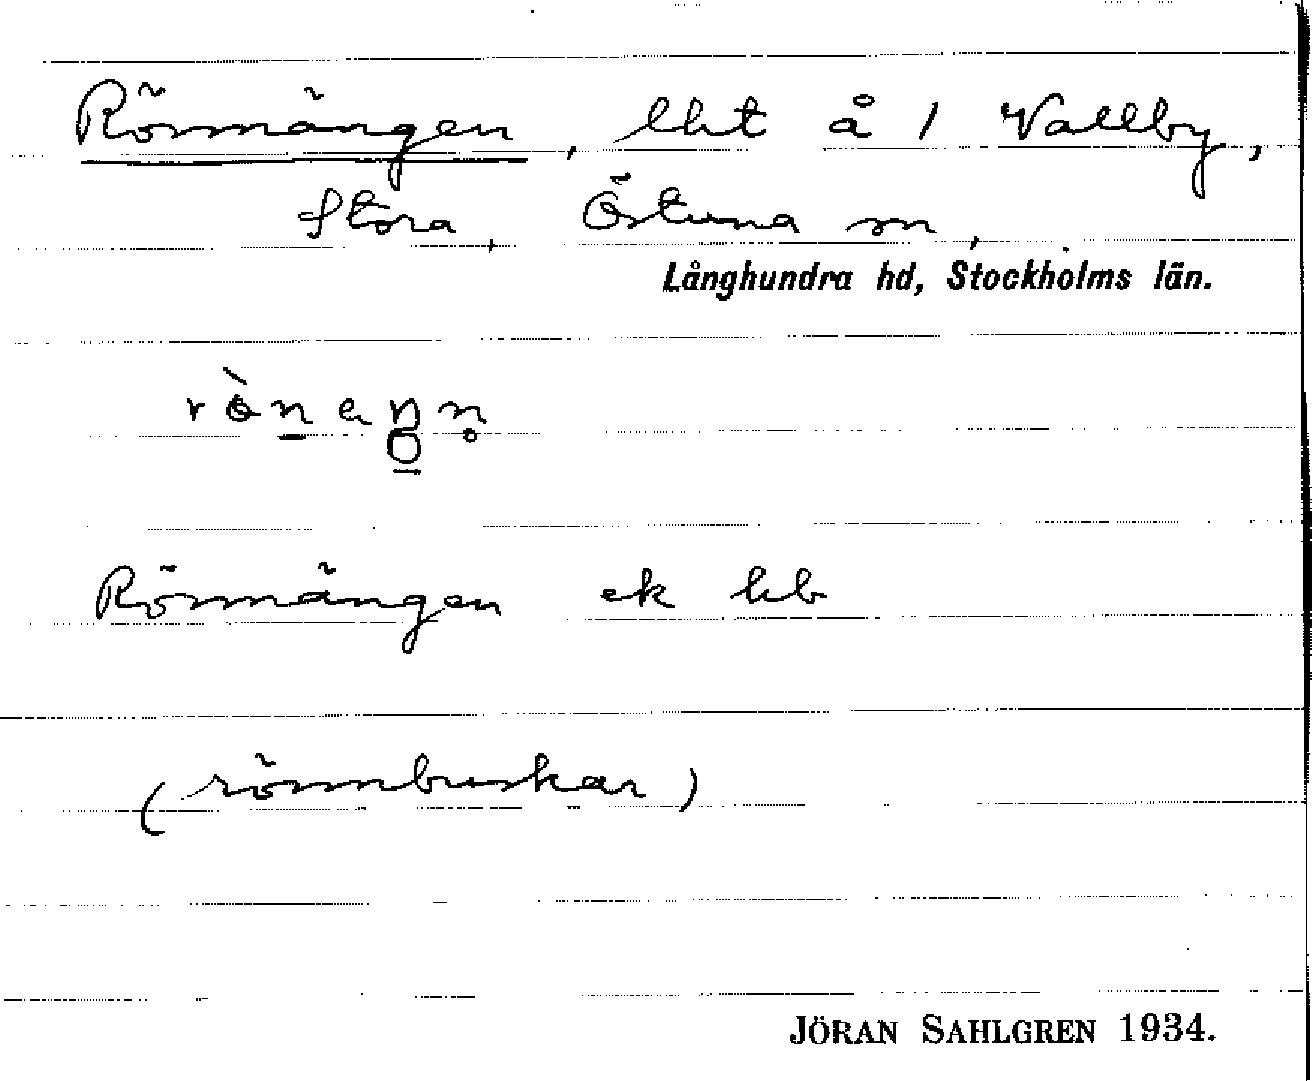 Rönnängen, lht å 1 Vallby,
Stora, Östuna sn,
Långhundra hd, Stockholms län.
Rönnängen ek hb
(rönnbuskar)
JÖRAN SAHLGREN 1934.